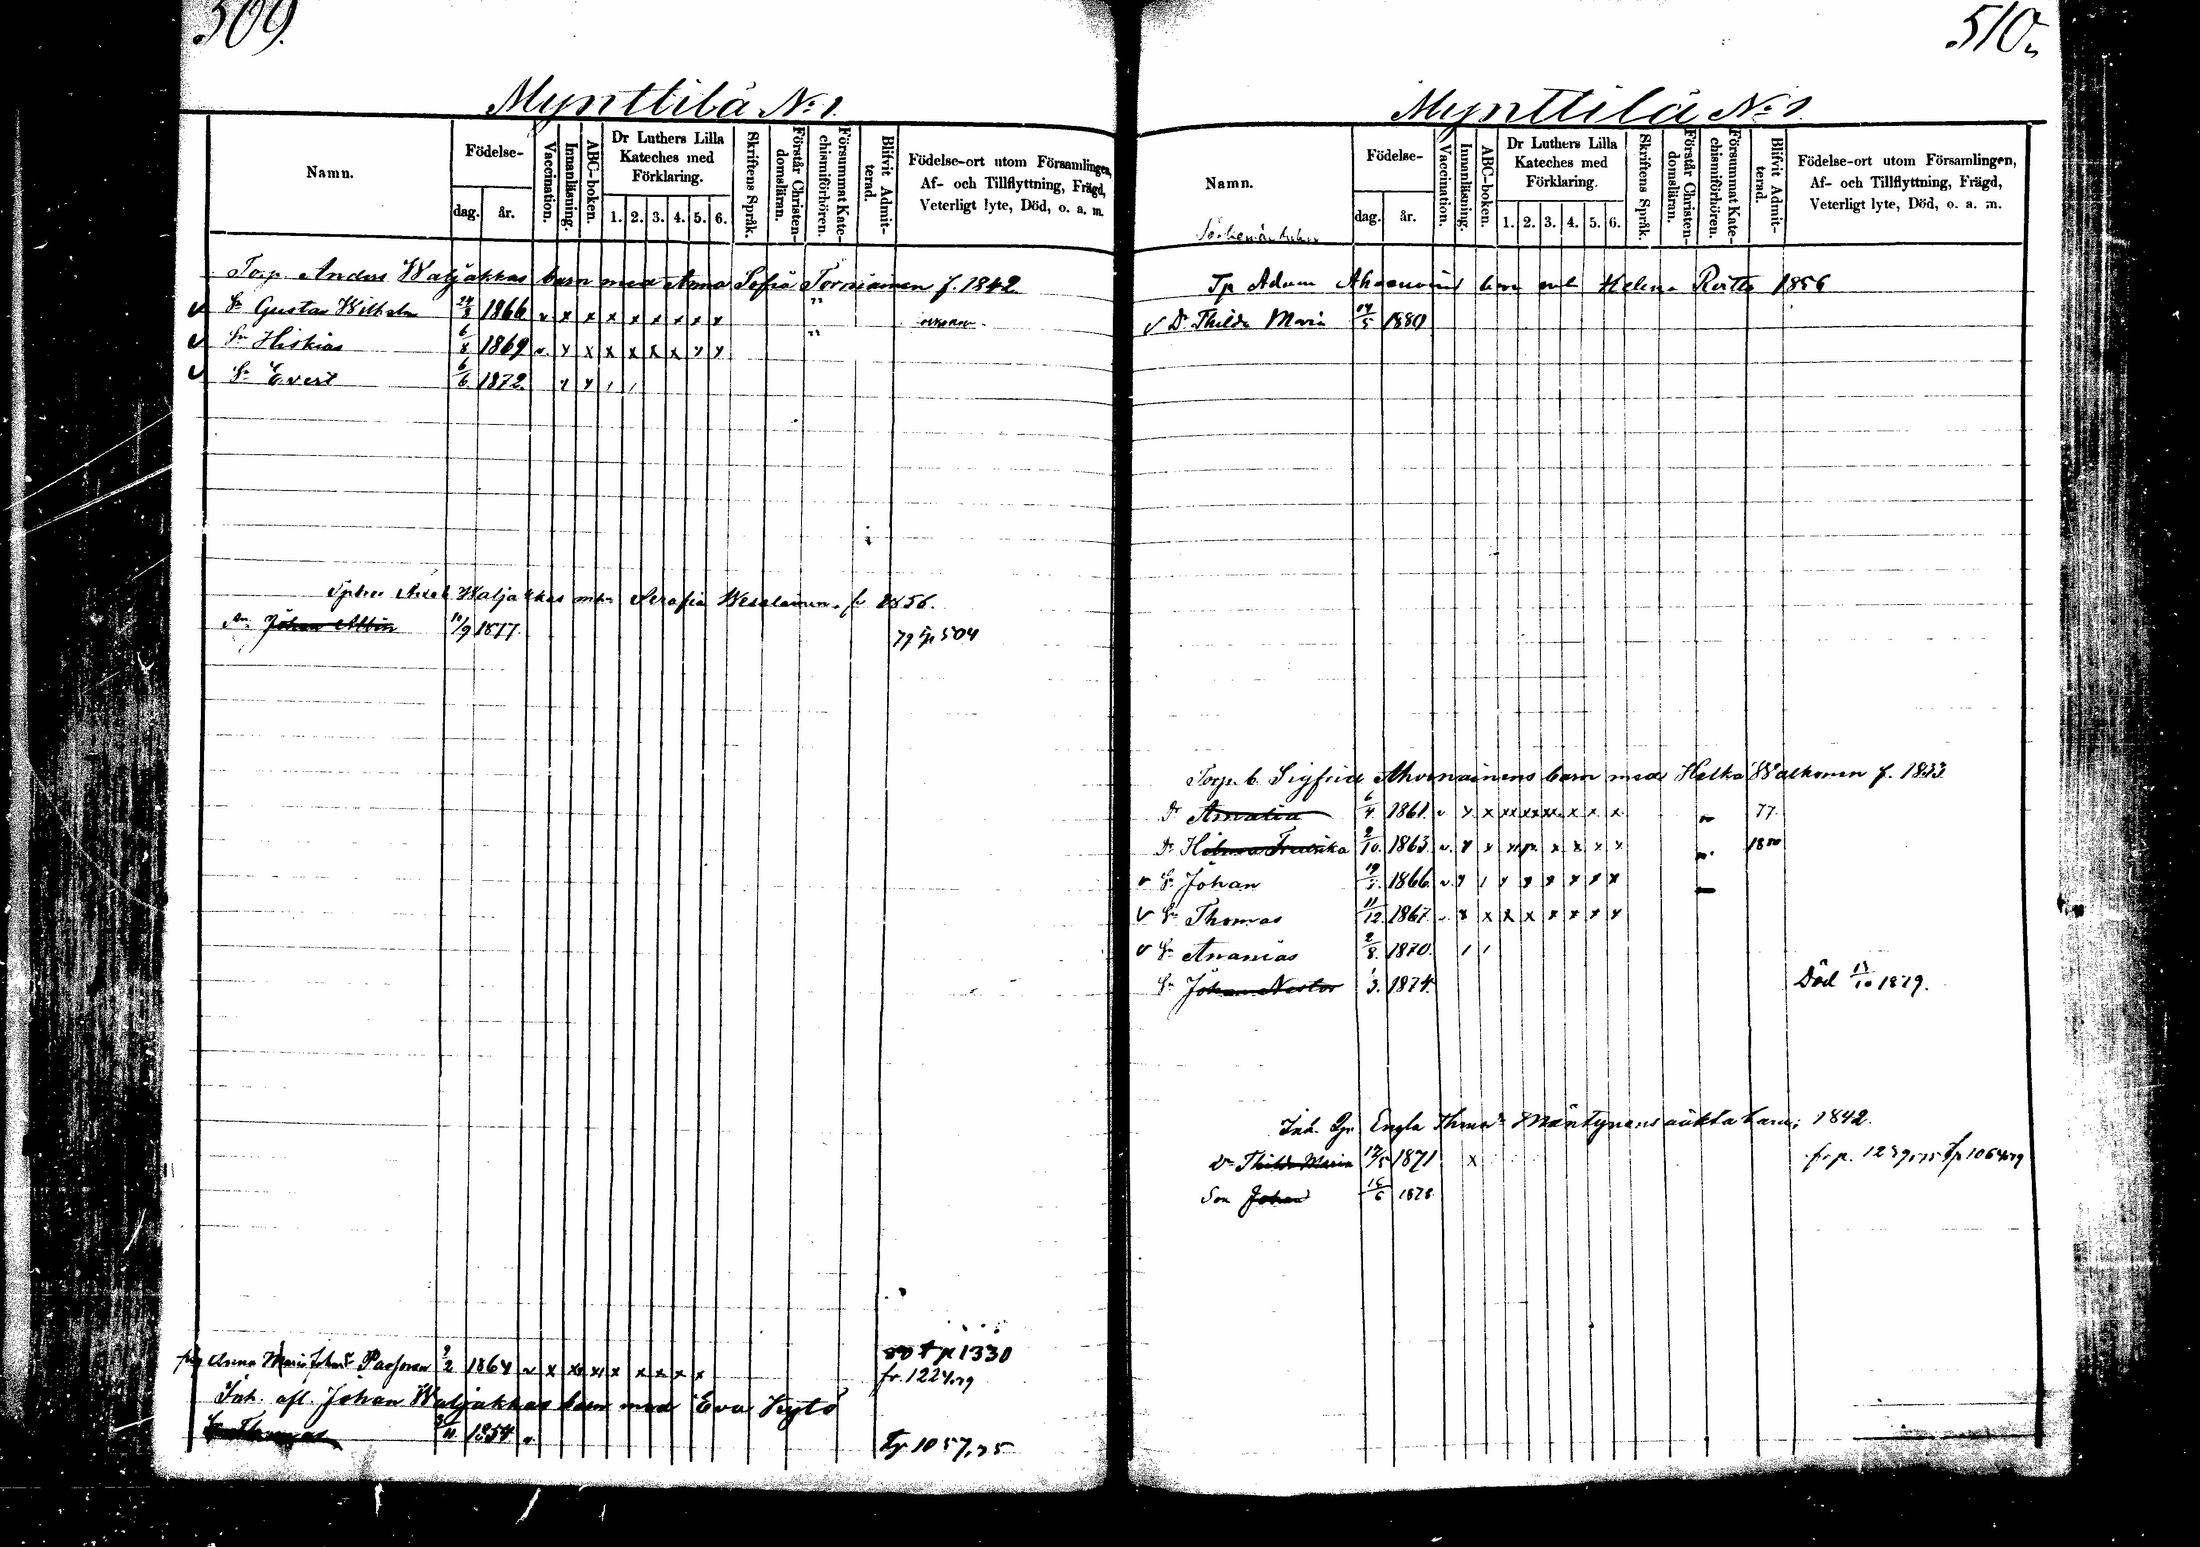 509.
Mynttilä No 1.
Namn.
Födelse-
dag.
år.
Vaccination.
Innanläsning.
ABC-boken.
Dr Luthers Lilla Kateches med Förklaring.
1. 2. 3. 4. 5. 6.
Skriftens Språk.
Förstår Christendomsläran.
Försummat Katechismiförhören.
Blifvit Admitterad.
Födelse-ort utom Församlingen, Af- och Tillflyttning, Frägd, Veterligt lyte, Död, o. a. m.
Torp. Anders Waljakkas barn med Anna Sofia Torniainen f. 1842
v Sn Gustav Wilhelm 24/3 1866 v x x x x x x x x "
v Sn Hiskias 6/8 1869 v. x x x x x x x x "
v Sn Evert 6/6. 1872. x x / /
Waljakkas Serafia Wesalainen. f. 1856.
Sn Johan Albin 10/9 1877. 79 tp 504
Anna Maria Paajonen 9/2 1864 v x xx x x x x x x tp 1330
fr. 1224,79
Inh. afl. Johan Waljakkas barn med Eva Kytö
Sn Thomas 11. 1854 v. Tp. 1057,75
510.
Mynttilä No 1.
Namn.
Födelse-
dag.
år.
Vaccination.
Innanläsning.
ABC-boken.
Dr Luthers Lilla Kateches med Förklaring.
1. 2. 3. 4. 5. 6.
Skriftens Språk.
Förstår Christendomsläran.
Försummat Katechismiförhören.
Blifvit Admitterad.
Födelse-ort utom Församlingen, Af- och Tillflyttning, Frägd, Veterligt lyte, Död, o. a. m.
Tp Adam barn med Helena 1856
v Dr Thilda Maria 14/5 1880
Torp. b. Sigfrid Ahvenainens barn med Helka Walkonen f. 1833
Dr Amalia 6/4 1861. v x x xx xx xx x x x 77.
Dr Hilma Fredrika 2/10. 1863. v. x x x x x x x 1880
v Sn Johan 19/5. 1866. v. x / x x x x x x
v Sn Thomas 11/12. 1867. v. x x x x x x x x
v Sn Ananias 2/8. 1870. / /
Sn Johan Nestor 1/3. 1874. Död 13/10 1879.
Inh. Engla Mäntynens oäkta barn; 1842.
Dr Thilda Maria 12/5 1871 x fr p. 1239,75 tp 1064,79
Son Johan 16/6 1878.